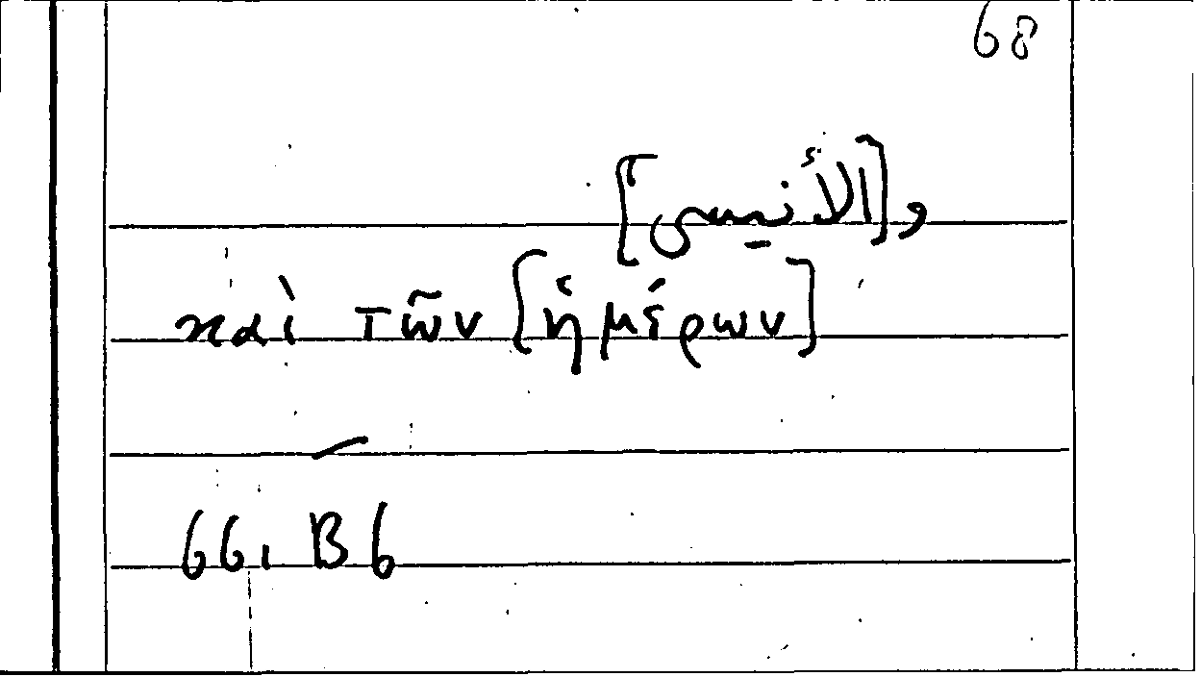 68
و[الأنيس]
καὶ τῶν [ἡμέρων]
66, B 6